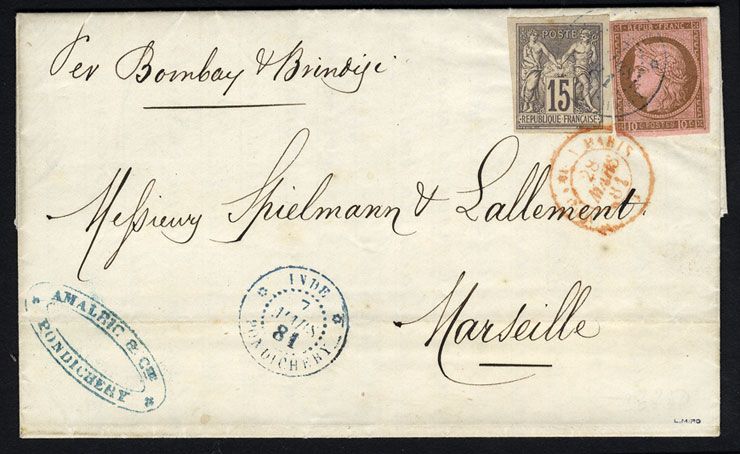 Per Bombay & Brindisi
POSTE
15
REPUBLIQUE FRANÇAISE
REPUB. FRANC.
10 C. POSTES 10 C.
PARIS
28
MARS
81
Messieurs Spielmann & Lallement
Marseille
INDE
7
MARS
81
PONDICHERY
AMALRIC & Cie
PONDICHERY
L.MIRO